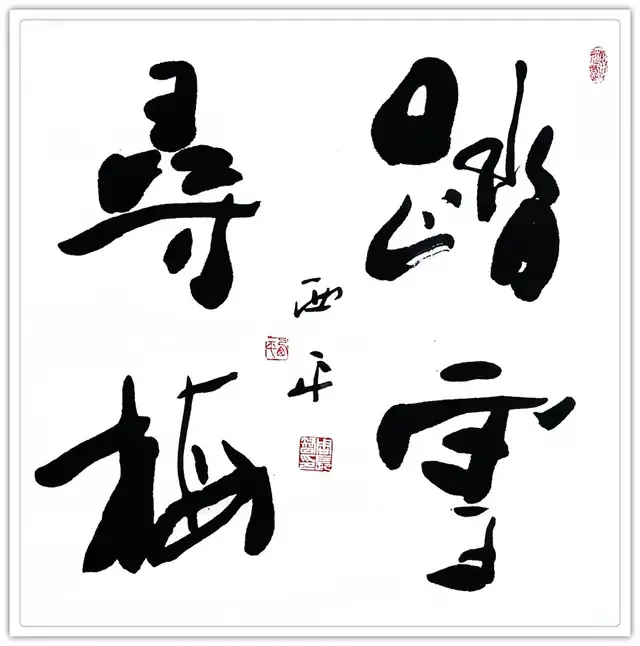 踏雪
尋梅
西平